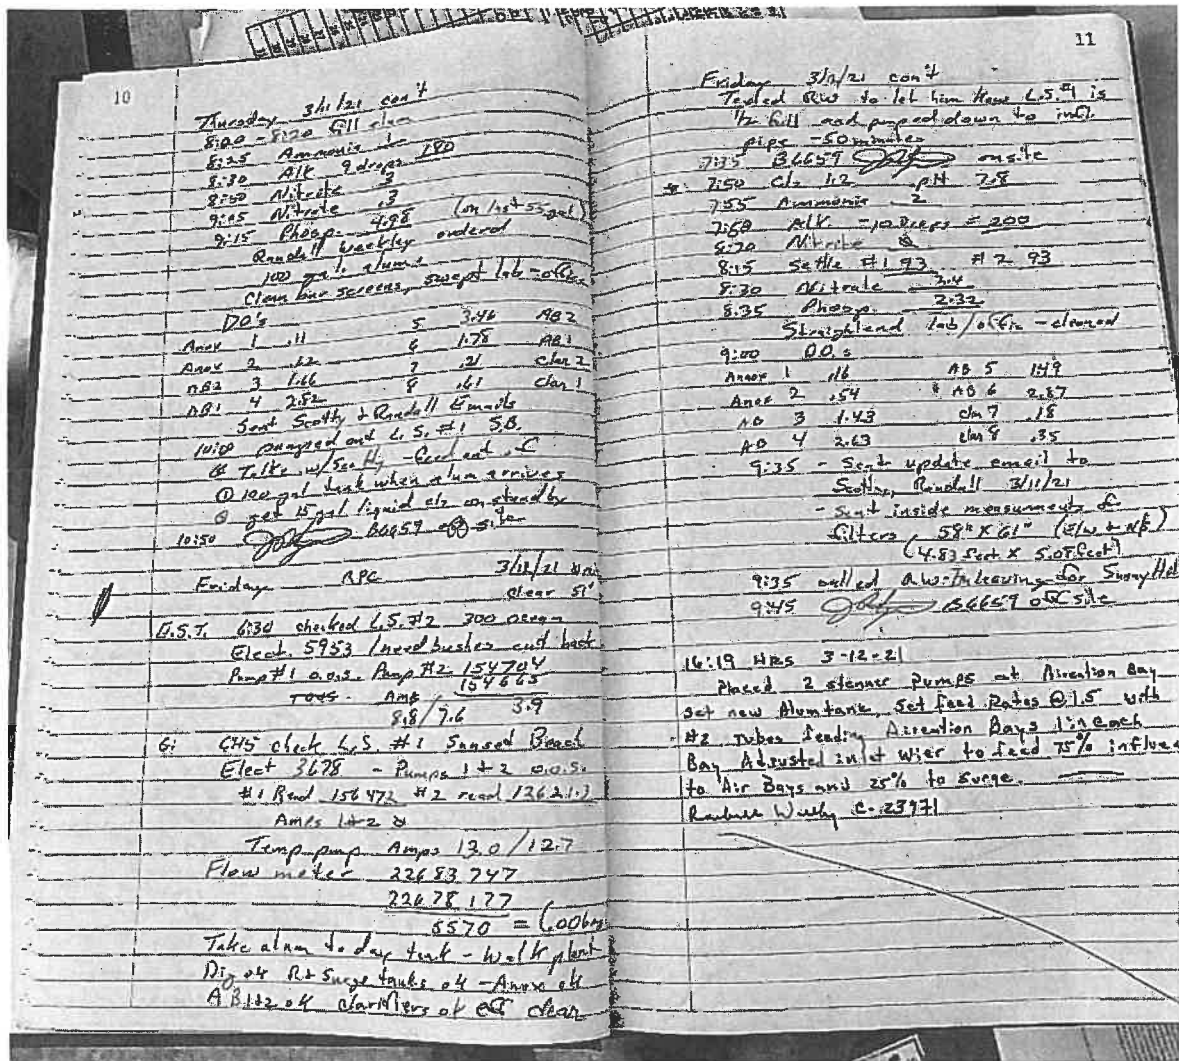 10
Thursday 3/11/21 con't
8:20 - 8:20 Fill alum
8:25 Ammonia 1
8:30 Alk 9 drops 180
8:50 Nitrite .3
9:05 Nitrate .3
9:15 Phosp. 4.98 (on last 55 gal)
Randall Weekly ordered
100 gals alum
Clean bar screens, swept lab - office
DO's
Anox 1 .11 5 3.46 AB2
Anox 2 .22 6 1.78 AB1
AB2 3 1.66 7 .21 Clar 2
AB1 4 2.82 8 .61 Clar 1
Sent Scotty & Randall Emails
10:00 pumped out L.S. #1 S.B.
Talks w/Scotty -
① 100 gal tank when alum arrives
get 15 gal liquid on standby
10:50 B6659 off site
Friday RPC 3/12/21
Clear 51°
E.S.T. 6:30 checked L.S. #2 300 ocean
Elect. 5953 / need bushes cut back
Pump #1 o.o.s. Pump #2 154704
154665
Amp 3.9
8.8/7.6
6: check L.S. #1 Sunset Beach
Elect 3678 - Pumps 1+2 o.o.s.
#1 Read 156472 #2 read
Amps 1+2
Temp pump Amps 13.0/12.7
Flow meter 22683747
22678177
5570 =
Take alum to day tank - walk plant
Dig ok R+ Surge tanks ok - Anox ok
AB 1+2 ok clarifiers ok eff clear
11
Friday 3/12/21 con't
Texted RW to let him know L.S. #1 is
1/2 full and pumped down to infl.
pipe - 50 minutes
7:35 B6659 onsite
7:50 Cl2 1.2 pH 7.8
7:55 Ammonia .2
Alk. - 10 Drops = 200
Nitrite
8:15 Settle #1 93 #2 93
8:30 Nitrate 3.4
8:35 Phosp. 2.32
Straightend lab/offic - cleaned
9:00 D.O.s
Anox 1 .16 AB 5 1.49
Anox 2 .54 AB 6 2.87
AB 3 1.43 clar 7 .18
AB 4 2.63 clar 8 .35
9:35 - Sent update email to
Scotty, Randall 3/11/21
- Sent inside measurments of
filters, 58" X 61" (E/W + N/S)
(4.83 feet X 5.08 feet)
9:35 called RW - I'm leaving for
9:45 B6659 off site
16:19 HRS 3-12-21
Placed 2 stenner pumps at Airention Bay
Set new Alum tank, set feed Rates @ 1.5 with
#2 Tubes feading Airention Bays 1 in each
Bay Adjusted inlet Wier to feed 75% influe
to Air Bays and 25% to surge.
C-23971